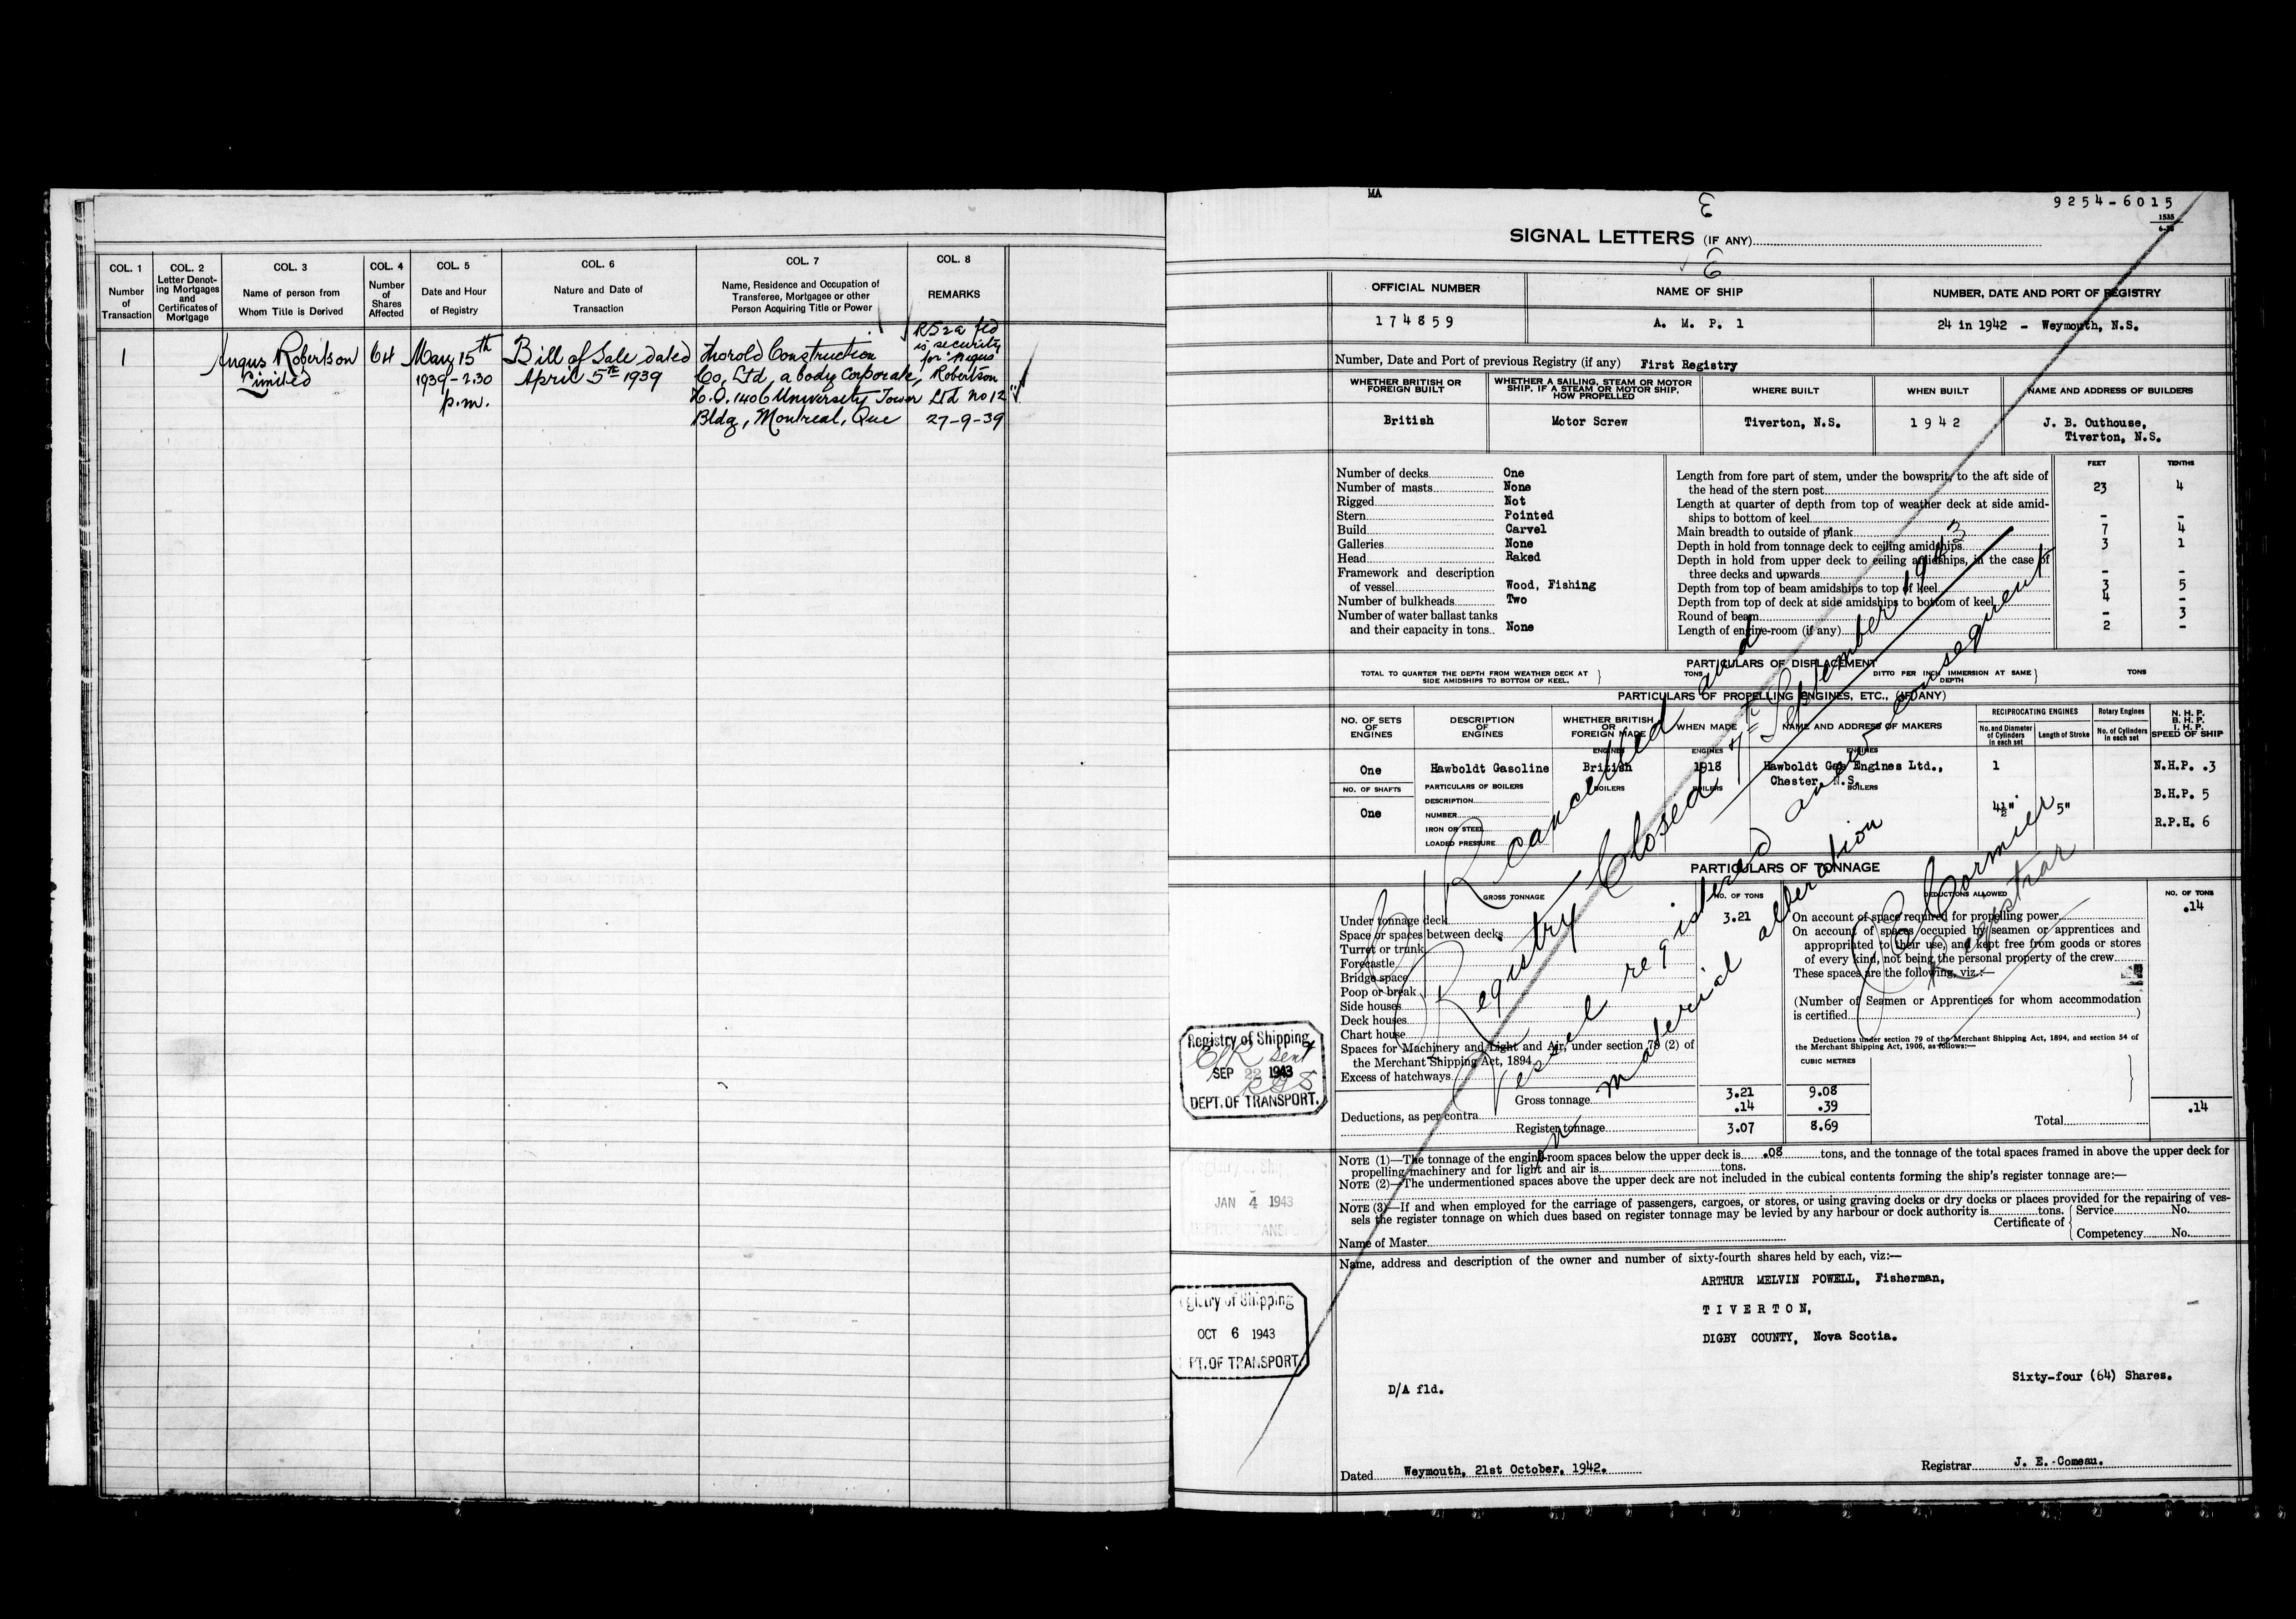 COL. 1
Number
of
Transaction
COL. 2
Letter Denot-
ing Mortgages
and
Certificates of
Mortgage
COL. 3
Name of person from
Whom Title is Derived
COL. 4
Number
of
Shares
Affected
COL. 5
Date and Hour
of Registry
COL. 6
Nature and Date of
Transaction
COL. 7
Name, Residence and Occupation of
Transferee, Mortgagee or other
Person Acquiring Title or Power
COL. 8
REMARKS
1
Angus Robertson
Limited
64
May 15th
1939 - 2.30
p.m.
Bill of Sale dated
April 5th 1939
Thorold Construction
Co, Ltd, a body Corporate,
H.O. 1406 University Tower
Bldg, Montreal, Que
is security
for Angus
Robertson
Ltd No 12
27-9-39
MA
9254-6015
1535
SIGNAL LETTERS (IF ANY)
OFFICIAL NUMBER
NAME OF SHIP
NUMBER, DATE AND PORT OF REGISTRY
174859
A. M. P. 1
24 in 1942 - Weymouth, N.S.
Number, Date and Port of previous Registry (if any) First Registry
WHETHER BRITISH OR
FOREIGN BUILT
WHETHER A SAILING, STEAM OR MOTOR
SHIP. IF A STEAM OR MOTOR SHIP,
HOW PROPELLED
WHERE BUILT
WHEN BUILT
NAME AND ADDRESS OF BUILDERS
British
Motor Screw
Tiverton, N.S.
1942
J. B. Outhouse,
Tiverton, N.S.
Number of decks One
Number of masts None
Rigged Not
Stern Pointed
Build Carvel
Galleries None
Head Raked
Framework and description
of vessel Wood, Fishing
Number of bulkheads Two
Number of water ballast tanks
and their capacity in tons None
FEET TENTHS
Length from fore part of stem, under the bowsprit, to the aft side of
the head of the stern post 23 4
Length at quarter of depth from top of weather deck at side amid-
ships to bottom of keel - -
Main breadth to outside of plank 7 4
Depth in hold from tonnage deck to ceiling amidships 3 1
Depth in hold from upper deck to ceiling amidships, in the case of
three decks and upwards - -
Depth from top of beam amidships to top of keel 3 5
Depth from top of deck at side amidships to bottom of keel 4 -
Round of beam - 3
Length of engine-room (if any) 2 -
PARTICULARS OF DISPLACEMENT
TOTAL TO QUARTER THE DEPTH FROM WEATHER DECK AT
SIDE AMIDSHIPS TO BOTTOM OF KEEL.
TONS
DITTO PER INCH IMMERSION AT SAME
DEPTH
TONS
PARTICULARS OF PROPELLING ENGINES, ETC., (IF ANY)
NO. OF SETS
OF
ENGINES
DESCRIPTION
OF
ENGINES
WHETHER BRITISH
OR
FOREIGN MADE
WHEN MADE
NAME AND ADDRESS OF MAKERS
RECIPROCATING ENGINES
No. and Diameter
of Cylinders
in each set
Length of Stroke
Rotary Engines
No. of Cylinders
in each set
N. H. P.
B. H. P.
I. H. P.
SPEED OF SHIP
ENGINES
ENGINES
ENGINES
One
Hawboldt Gasoline
British
1918
Hawboldt Gas Engines Ltd.,
Chester, N.S.
1
N.H.P. .3
NO. OF SHAFTS
PARTICULARS OF BOILERS
BOILERS
BOILERS
BOILERS
DESCRIPTION
B.H.P. 5
One
NUMBER
4½"
5"
IRON OR STEEL
R.P.H. 6
LOADED PRESSURE
PARTICULARS OF TONNAGE
GROSS TONNAGE
NO. OF TONS
DEDUCTIONS ALLOWED
NO. OF TONS
Under tonnage deck 3.21
Space or spaces between decks
Turret or trunk
Forecastle
Bridge space
Poop or break
Side houses
Deck houses
Chart house
Spaces for Machinery and Light and Air, under section 78 (2) of
the Merchant Shipping Act, 1894
Excess of hatchways
Gross tonnage 3.21 9.08
Deductions, as per contra .14 .39
Register tonnage 3.07 8.69
On account of space required for propelling power .14
On account of spaces occupied by seamen or apprentices and
appropriated to their use, and kept free from goods or stores
of every kind, not being the personal property of the crew
These spaces are the following, viz:—
(Number of Seamen or Apprentices for whom accommodation
is certified )
Deductions under section 79 of the Merchant Shipping Act, 1894, and section 54 of
the Merchant Shipping Act, 1906, as follows:—
CUBIC METRES
Total .14
NOTE (1)—The tonnage of the engine-room spaces below the upper deck is .08 tons, and the tonnage of the total spaces framed in above the upper deck for
propelling machinery and for light and air is tons.
NOTE (2)—The undermentioned spaces above the upper deck are not included in the cubical contents forming the ship's register tonnage are:—
NOTE (3)—If and when employed for the carriage of passengers, cargoes, or stores, or using graving docks or dry docks or places provided for the repairing of ves-
sels the register tonnage on which dues based on register tonnage may be levied by any harbour or dock authority is tons.
Certificate of
Service No.
Competency No.
Name of Master
Name, address and description of the owner and number of sixty-fourth shares held by each, viz:—
ARTHUR MELVIN POWELL, Fisherman,
TIVERTON,
DIGBY COUNTY, Nova Scotia.
Sixty-four (64) Shares.
D/A fld.
Dated Weymouth, 21st October, 1942.
Registrar J. E. Comeau.
C/R cancelled and
Registry Closed 7th September 1943
Vessel registered anew consequent
on material alteration
Cormier
Registrar
Registry of Shipping
C/R sent
SEP 22 1943
DEPT. OF TRANSPORT.
JAN 4 1943
gistry of Shipping
OCT 6 1943
PT. OF TRANSPORT